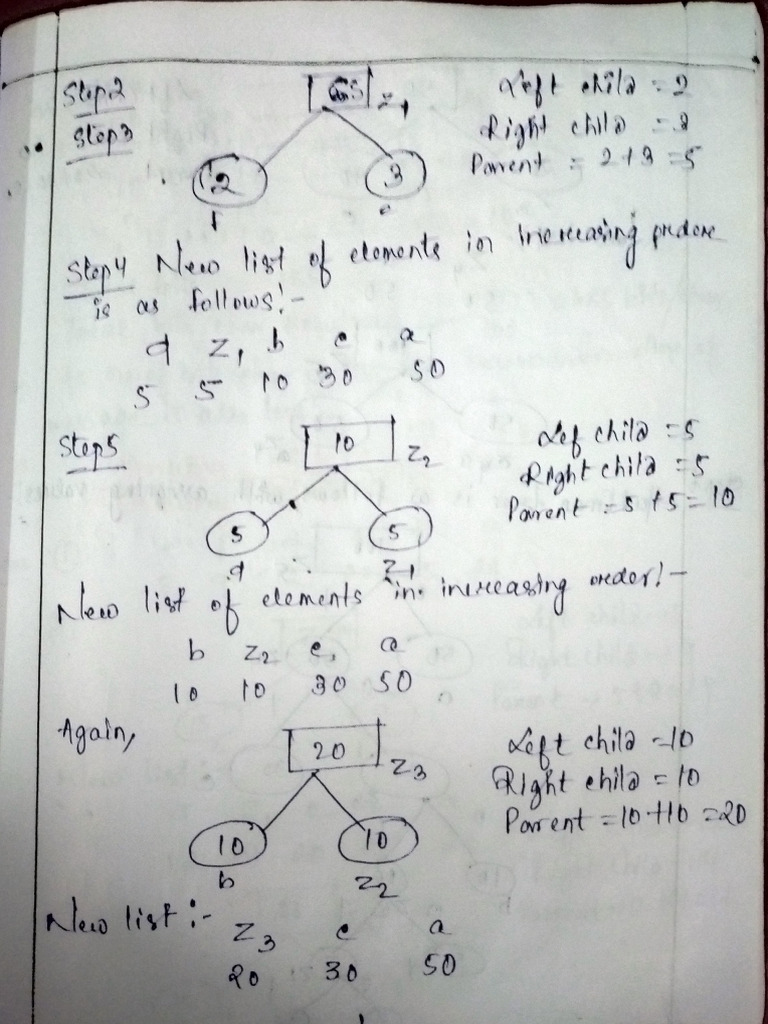 Step2
Step3
5 Z1
Left child = 2
Right child = 3
Parent = 2+3 =5
2 3
f e
Step4 New list of elements in increasing order
is as follows:-
d Z1 b c a
5 5 10 30 50
Step5
10 Z2
Lef child =5
Right child =5
Parent = 5+5=10
5 5
d Z1
New list of elements in increasing order:-
b Z2 c a
10 10 30 50
Again,
20 Z3
Left child =10
Right child =10
Parent =10+10 =20
10 10
b Z2
New list:-
Z3 c a
20 30 50